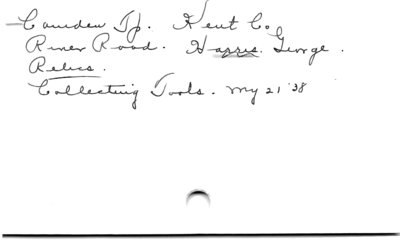 Camden Tp. Kent Co.
River Road. Harris. George.
Relics.
Collecting Tools. My 21 '38